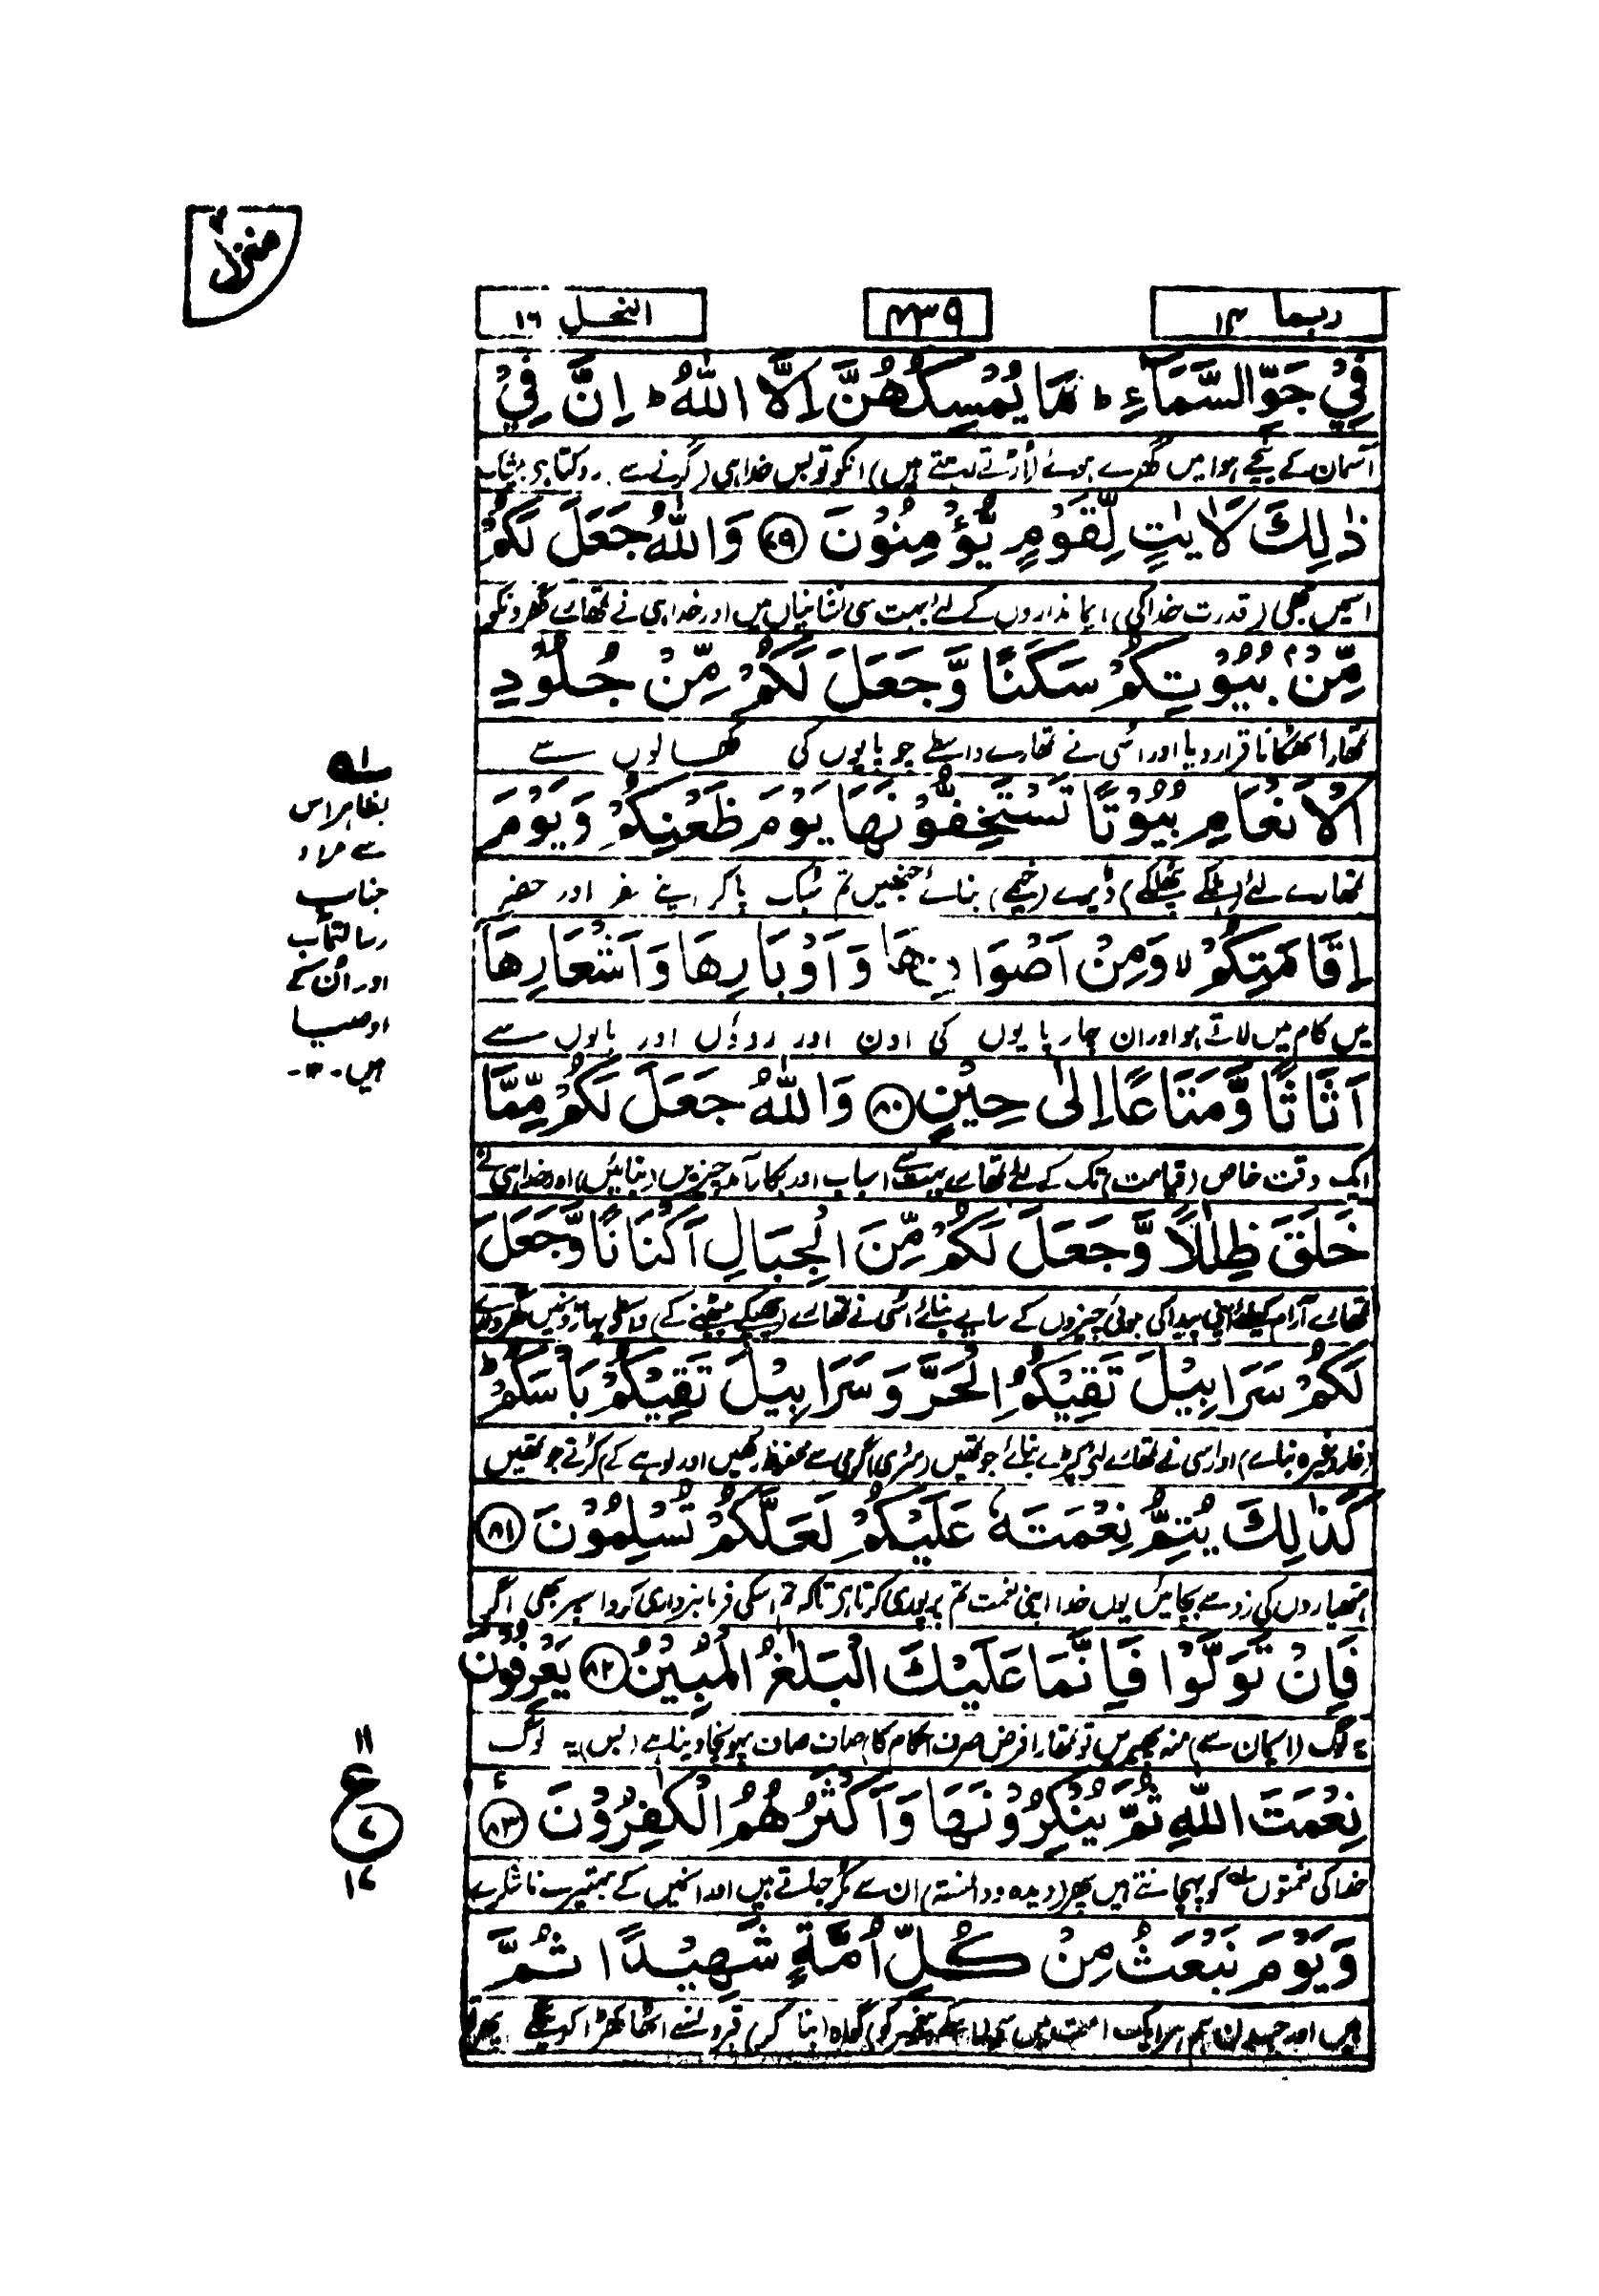 منزل ۳
ربما ۱۴
۴۳۹
النحل ۱۶
فِيْ جَوِّ السَّمَآءِ ؕ مَا يُمْسِكُهُنَّ اِلَّا اللّٰهُ ؕ اِنَّ فِيْ
آسمان کے نیچے ہوا میں گھرے ہوئے (اڑتے رہتے ہیں) انکو تو بس خدا ہی (گرنے سے) روکتا ہی بیشک
ذٰلِكَ لَاٰيٰتٍ لِّقَوْمٍ يُّؤْمِنُوْنَ ﴿۷۹﴾ وَاللّٰهُ جَعَلَ لَكُمْ
اسمیں بھی (قدرت خدا کی) ایمانداروں کے لئے بہت سی نشانیاں ہیں اور خدا ہی نے تمھارے گھرونکو
مِّنْۢ بُيُوْتِكُمْ سَكَنًا وَّجَعَلَ لَكُمْ مِّنْ جُلُوْدِ
تمھارا ٹھکانا قرار دیا اور اُسی نے تمھارے واسطے چوپایوں کی کھالوں سے
الْاَنْعَامِ بُيُوْتًا تَسْتَخِفُّوْنَهَا يَوْمَ ظَعْنِكُمْ وَيَوْمَ
تمھارے لئے (ہلکے پھلکے) ڈیرے (خیمے) بنائے جنھیں تم سُبک پا کر اپنے سفر اور حضر
اِقَامَتِكُمْ ۙ وَمِنْ اَصْوَافِهَا وَاَوْبَارِهَا وَاَشْعَارِهَا
میں کام میں لاتے ہو اور ان چارپایوں کی اون اور روؤں اور بالوں سے
اَثَاثًا وَّمَتَاعًا اِلٰى حِيْنٍ ﴿۸۰﴾ وَاللّٰهُ جَعَلَ لَكُمْ مِّمَّا
ایک وقت خاص (قیامت) تک کے لئے تمھارے بہت سے اسباب اور بکارآمد چیزیں (بنائیں) اور خدا ہی نے
خَلَقَ ظِلٰلًا وَّجَعَلَ لَكُمْ مِّنَ الْجِبَالِ اَكْنَانًا وَّجَعَلَ
تمھارے آرام کیلئے اپنی پیدا کی ہوئی چیزوں کے سایے بنائے اُسی نے تمھارے (چھپکے بیٹھنے کے) واسطے پہاڑونمیں گھروندے
لَكُمْ سَرَابِيْلَ تَقِيْكُمُ الْحَرَّ وَسَرَابِيْلَ تَقِيْكُمْ بَاْسَكُمْ ؕ
(غار وغیرہ بنائے) اور اسی نے تمھارے لئے کپڑے بنائے جو تمھیں (سردی) گرمی سے محفوظ رکھیں اور لوہے کے کُرتے جو تمھیں
كَذٰلِكَ يُتِمُّ نِعْمَتَهٗ عَلَيْكُمْ لَعَلَّكُمْ تُسْلِمُوْنَ ﴿۸۱﴾
ہتھیاروں کی زد سے بچائیں یوں خدا اپنی نعمت تم پر پوری کرتا ہی تاکہ تم اسکی فرمانبرداری کرو اسپر بھی اگر
فَاِنْ تَوَلَّوْا فَاِنَّمَا عَلَيْكَ الْبَلٰغُ الْمُبِيْنُ ﴿۸۲﴾ يَعْرِفُوْنَ
یہ لوگ (ایمان سے) منہ پھیریں تو تمھارا فرض صرف احکام کا صاف صاف پہونچا دینا ہے (بس) یہ لوگ
نِعْمَتَ اللّٰهِ ثُمَّ يُنْكِرُوْنَهَا وَاَكْثَرُهُمُ الْكٰفِرُوْنَ ﴿۸۳﴾
خدا کی نعمتوں کو پہچانتے ہیں پھر (دیدہ و دانستہ) ان سے مکر جاتے ہیں اور انھیں کے بہتیرے ناشکرے
وَيَوْمَ نَبْعَثُ مِنْ كُلِّ اُمَّةٍ شَهِيْدًا ثُمَّ
ہیں اور جسدن ہم ہر ایک امت میں سے اسکے پیغمبر کو گواہ (بنا کر) قبروں سے اٹھا کھڑا کرینگے پھر
۱
بظاہر اس
سے مراد
جناب
رسالتمآب
اور اُن کے
اوصیا
ہیں۔ ۱۲۔
۱۱
ع
۷
۱۷